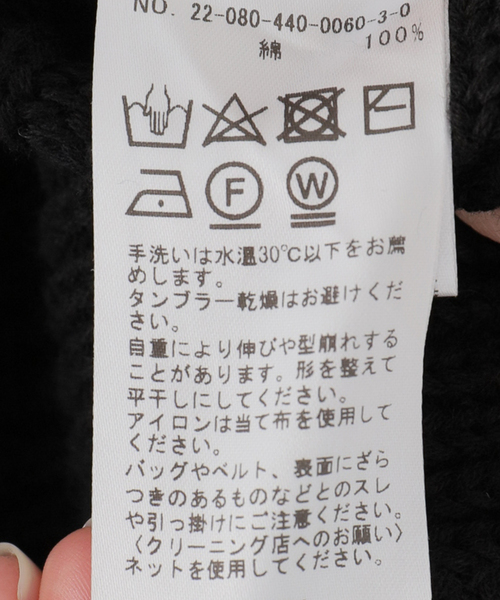 NO. 22-080-440-0060-3-0
綿 100%
F W
手洗いは水温30℃以下をお薦
めします。
タンブラー乾燥はお避けくだ
さい。
自重により伸びや型崩れする
ことがあります。形を整えて
平干しにしてください。
アイロンは当て布を使用して
ください。
バッグやベルト、表面にざら
つきのあるものなどとのスレ
や引っ掛けにご注意ください。
〈クリーニング店へのお願い〉
ネットを使用してください。